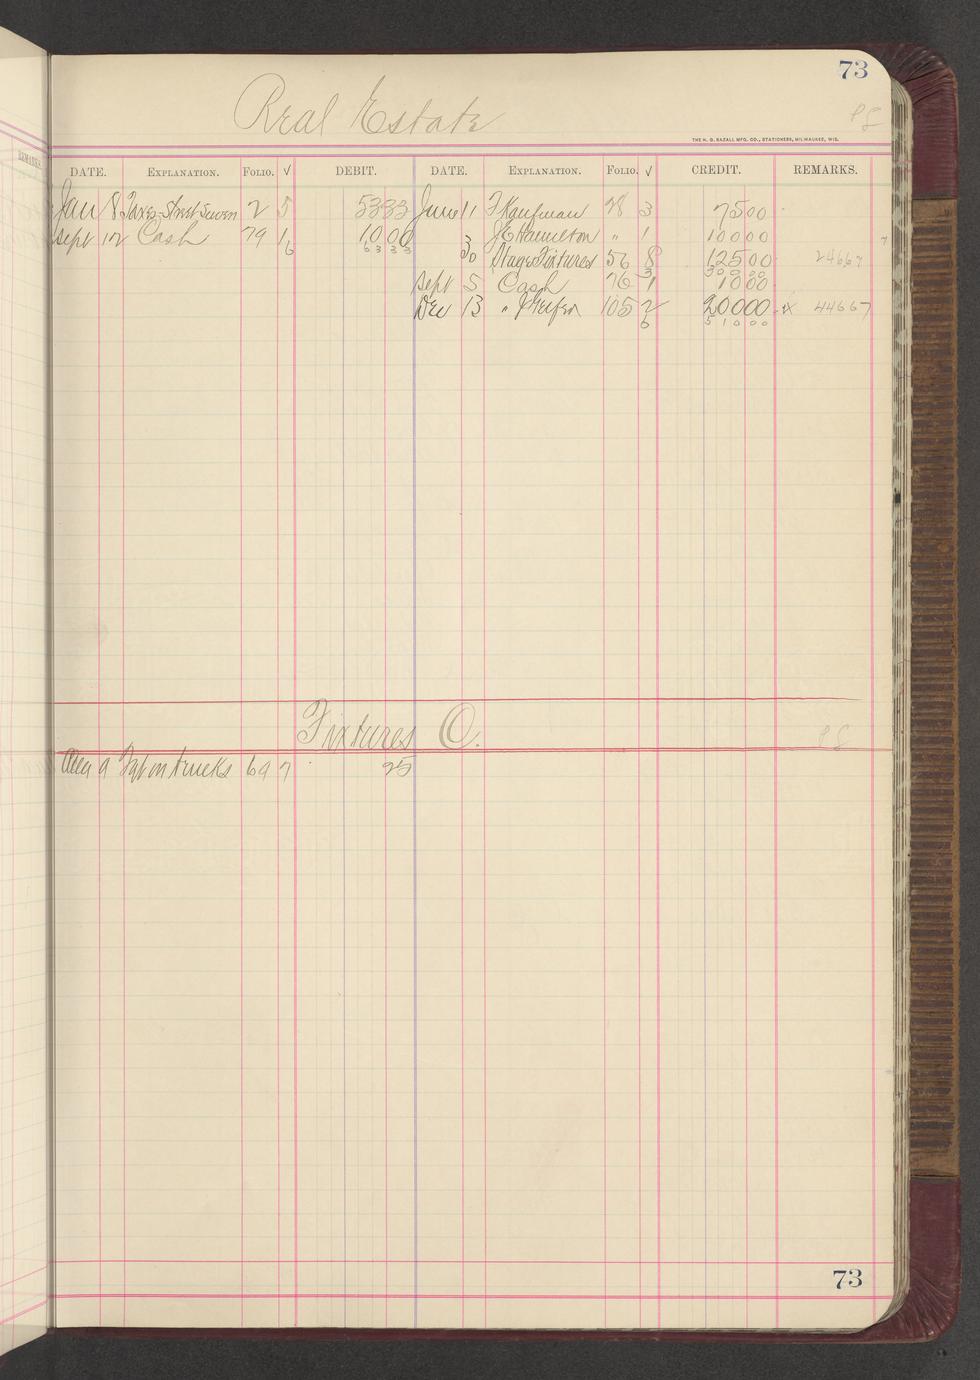 73
Real Estate
THE H. G. RAZALL MFG. CO., STATIONERS, MILWAUKEE, WIS.
REMARKS.
DATE. EXPLANATION. FOLIO. √ DEBIT. DATE. EXPLANATION. FOLIO. √ CREDIT. REMARKS.
Jan 8 Taxes-Street Sewer 2 5 5333 June 11 F Kaufman 28 3 7500
Sept 12 Cash 79 1 1000 J E Hamilton " 1 10000
6 6333 30 Stage Fixtures 56 8 12500 24667
3 30000
Sept 5 Cash 76 1 1000
Dec 13 " J 105 2 20000 44667
6 51000
Fixtures O.
9 on trucks 69 7 25
73